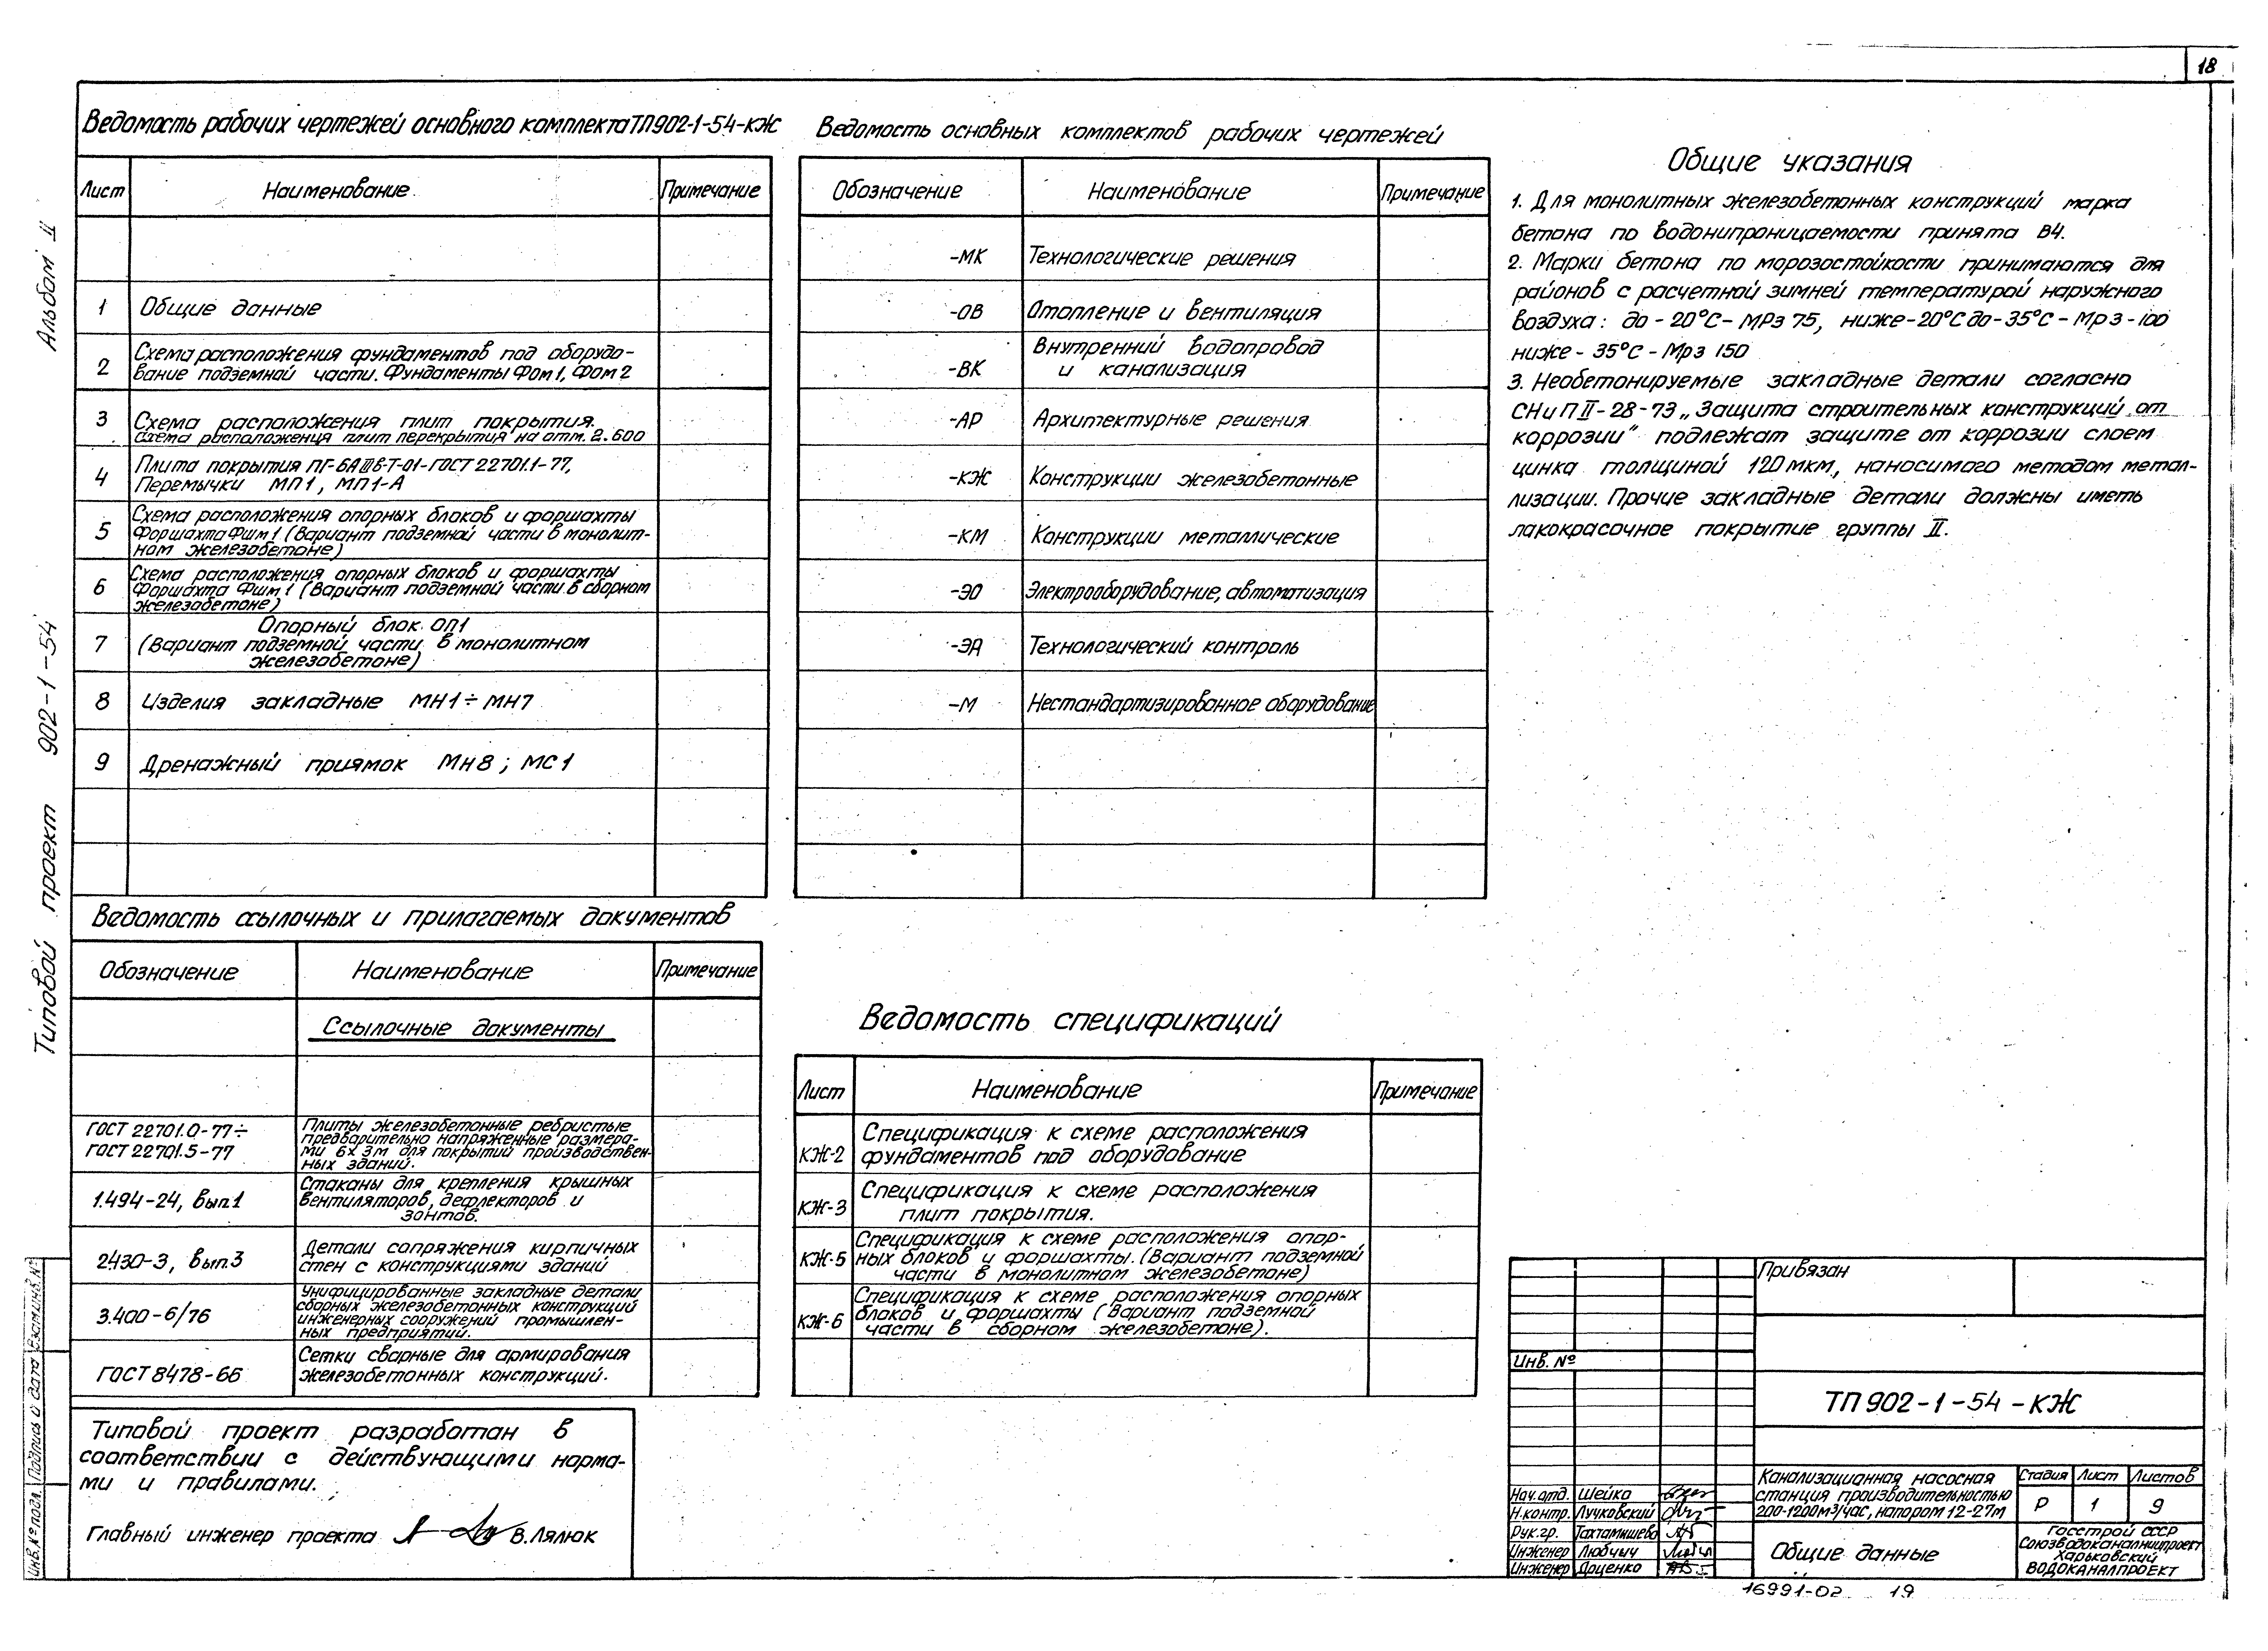 18
Альбом II
Типовой проект 902-1-54
Ведомость рабочих чертежей основного комплекта ТП902-1-54-КЖ
Лист Наименование Примечание
1 Общие данные
2 Схема расположения фундаментов под оборудо-
вание подземной части. Фундаменты Фом1, Фом2
3 Схема расположения плит покрытия.
Схема расположения плит перекрытия на отм. 2.600
4 Плита покрытия ПГ-6АIIIв-Т-01-ГОСТ 22701.1-77,
Перемычки МП1, МП1-А
5 Схема расположения опорных блоков и форшахты
Форшахта Фшм1 (Вариант подземной части в монолит-
ном железобетоне)
6 Схема расположения опорных блоков и форшахты
Форшахта Фшм1 (Вариант подземной части в сборном
железобетоне)
7 Опорный блок ОП1
(Вариант подземной части в монолитном
железобетоне)
8 Изделия закладные МН1÷МН7
9 Дренажный приямок Мн8; МС1
Ведомость ссылочных и прилагаемых документов
Обозначение Наименование Примечание
Ссылочные документы
ГОСТ 22701.0-77÷
ГОСТ 22701.5-77
Плиты железобетонные ребристые
предварительно напряженные размера-
ми 6х3м для покрытий производствен-
ных зданий.
1.494-24, вып.1
Стаканы для крепления крышных
вентиляторов, дефлекторов и
зонтов.
2430-3, вып.3
Детали сопряжения кирпичных
стен с конструкциями зданий
3.400-6/76
Унифицированные закладные детали
сборных железобетонных конструкций
инженерных сооружений промышлен-
ных предприятий.
ГОСТ 8478-66
Сетки сварные для армирования
железобетонных конструкций.
Типовой проект разработан в
соответствии с действующими норма-
ми и правилами.
Главный инженер проекта В.Лялюк
Ведомость основных комплектов рабочих чертежей
Обозначение Наименование Примечание
-МК Технологические решения
-ОВ Отопление и вентиляция
-ВК Внутренний водопровод
и канализация
-АР Архитектурные решения
-КЖ Конструкции железобетонные
-КМ Конструкции металлические
-ЭО Электрооборудование, автоматизация
-ЭА Технологический контроль
-М Нестандартизированное оборудование
Ведомость спецификаций
Лист Наименование Примечание
КЖ-2 Спецификация к схеме расположения
фундаментов под оборудование
КЖ-3 Спецификация к схеме расположения
плит покрытия.
КЖ-5 Спецификация к схеме расположения опор-
ных блоков и форшахты. (Вариант подземной
части в монолитном железобетоне)
КЖ-6 Спецификация к схеме расположения опорных
блоков и форшахты (Вариант подземной
части в сборном железобетоне).
Общие указания
1. Для монолитных железобетонных конструкций марка
бетона по водонипроницаемости принята В4.
2. Марки бетона по морозостойкости принимаются для
районов с расчетной зимней температурой наружного
воздуха: до -20°С- МРз 75, ниже-20°С до-35°С - Мрз-100
ниже - 35°С - Мрз 150
3. Необетонируемые закладные детали согласно
СНиП II-28-73 „Защита строительных конструкций от
коррозии" подлежат защите от коррозии слоем
цинка толщиной 120 мкм, наносимого методом метал-
лизации. Прочие закладные детали должны иметь
лакокрасочное покрытие группы II.
Привязан
Инв. №
ТП 902-1-54-КЖ
Нач.отд. Шейко
Н.контр. Лучковский
Рук.гр. Тахтамышева
Инженер Любчыч
Инженер Доценко
Канализационная насосная
станция производительностью
200-1200м³/час, напором 12-27м
Стадия Лист Листов
Р 1 9
Общие данные
Госстрой СССР
Союзводоканалниипроект
Харьковский
ВОДОКАНАЛПРОЕКТ
16991-02 19
Инв.№ подл. Подпись и дата Взам.инв.№